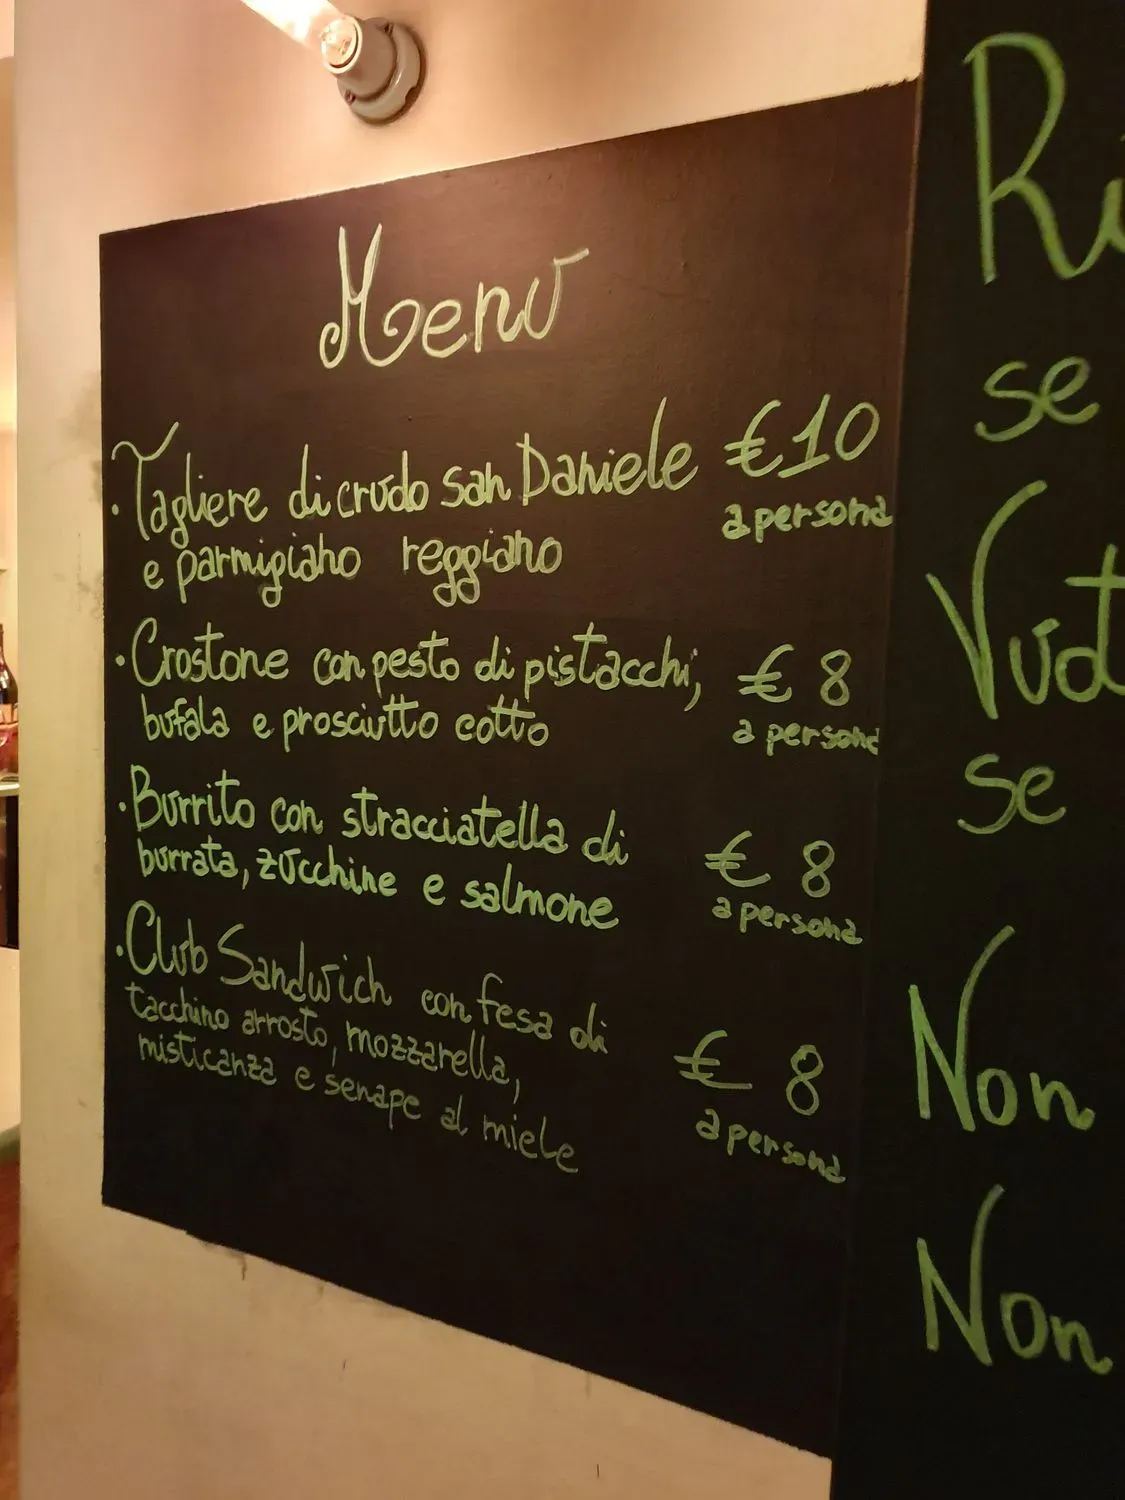 Menu
• Tagliere di crudo san Daniele €10
a persona
e parmigiano reggiano
• Crostone con pesto di pistacchi, € 8
bufala e prosciutto cotto a persona
• Burrito con stracciatella di € 8
burrata, zucchine e salmone a persona
• Club Sandwich con fesa di
tacchino arrosto, mozzarella, € 8
misticanza e senape al miele a persona
se
se
Non
Non